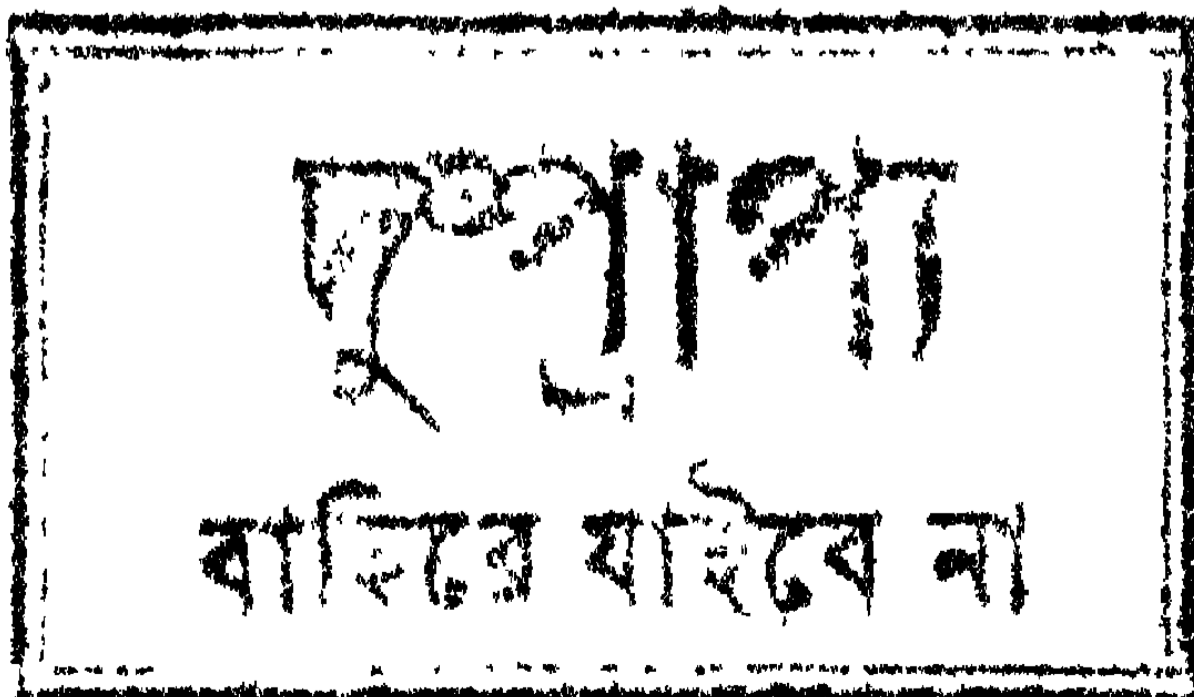 দুষ্প্রাপ্য
বাহিরে যাইবে না